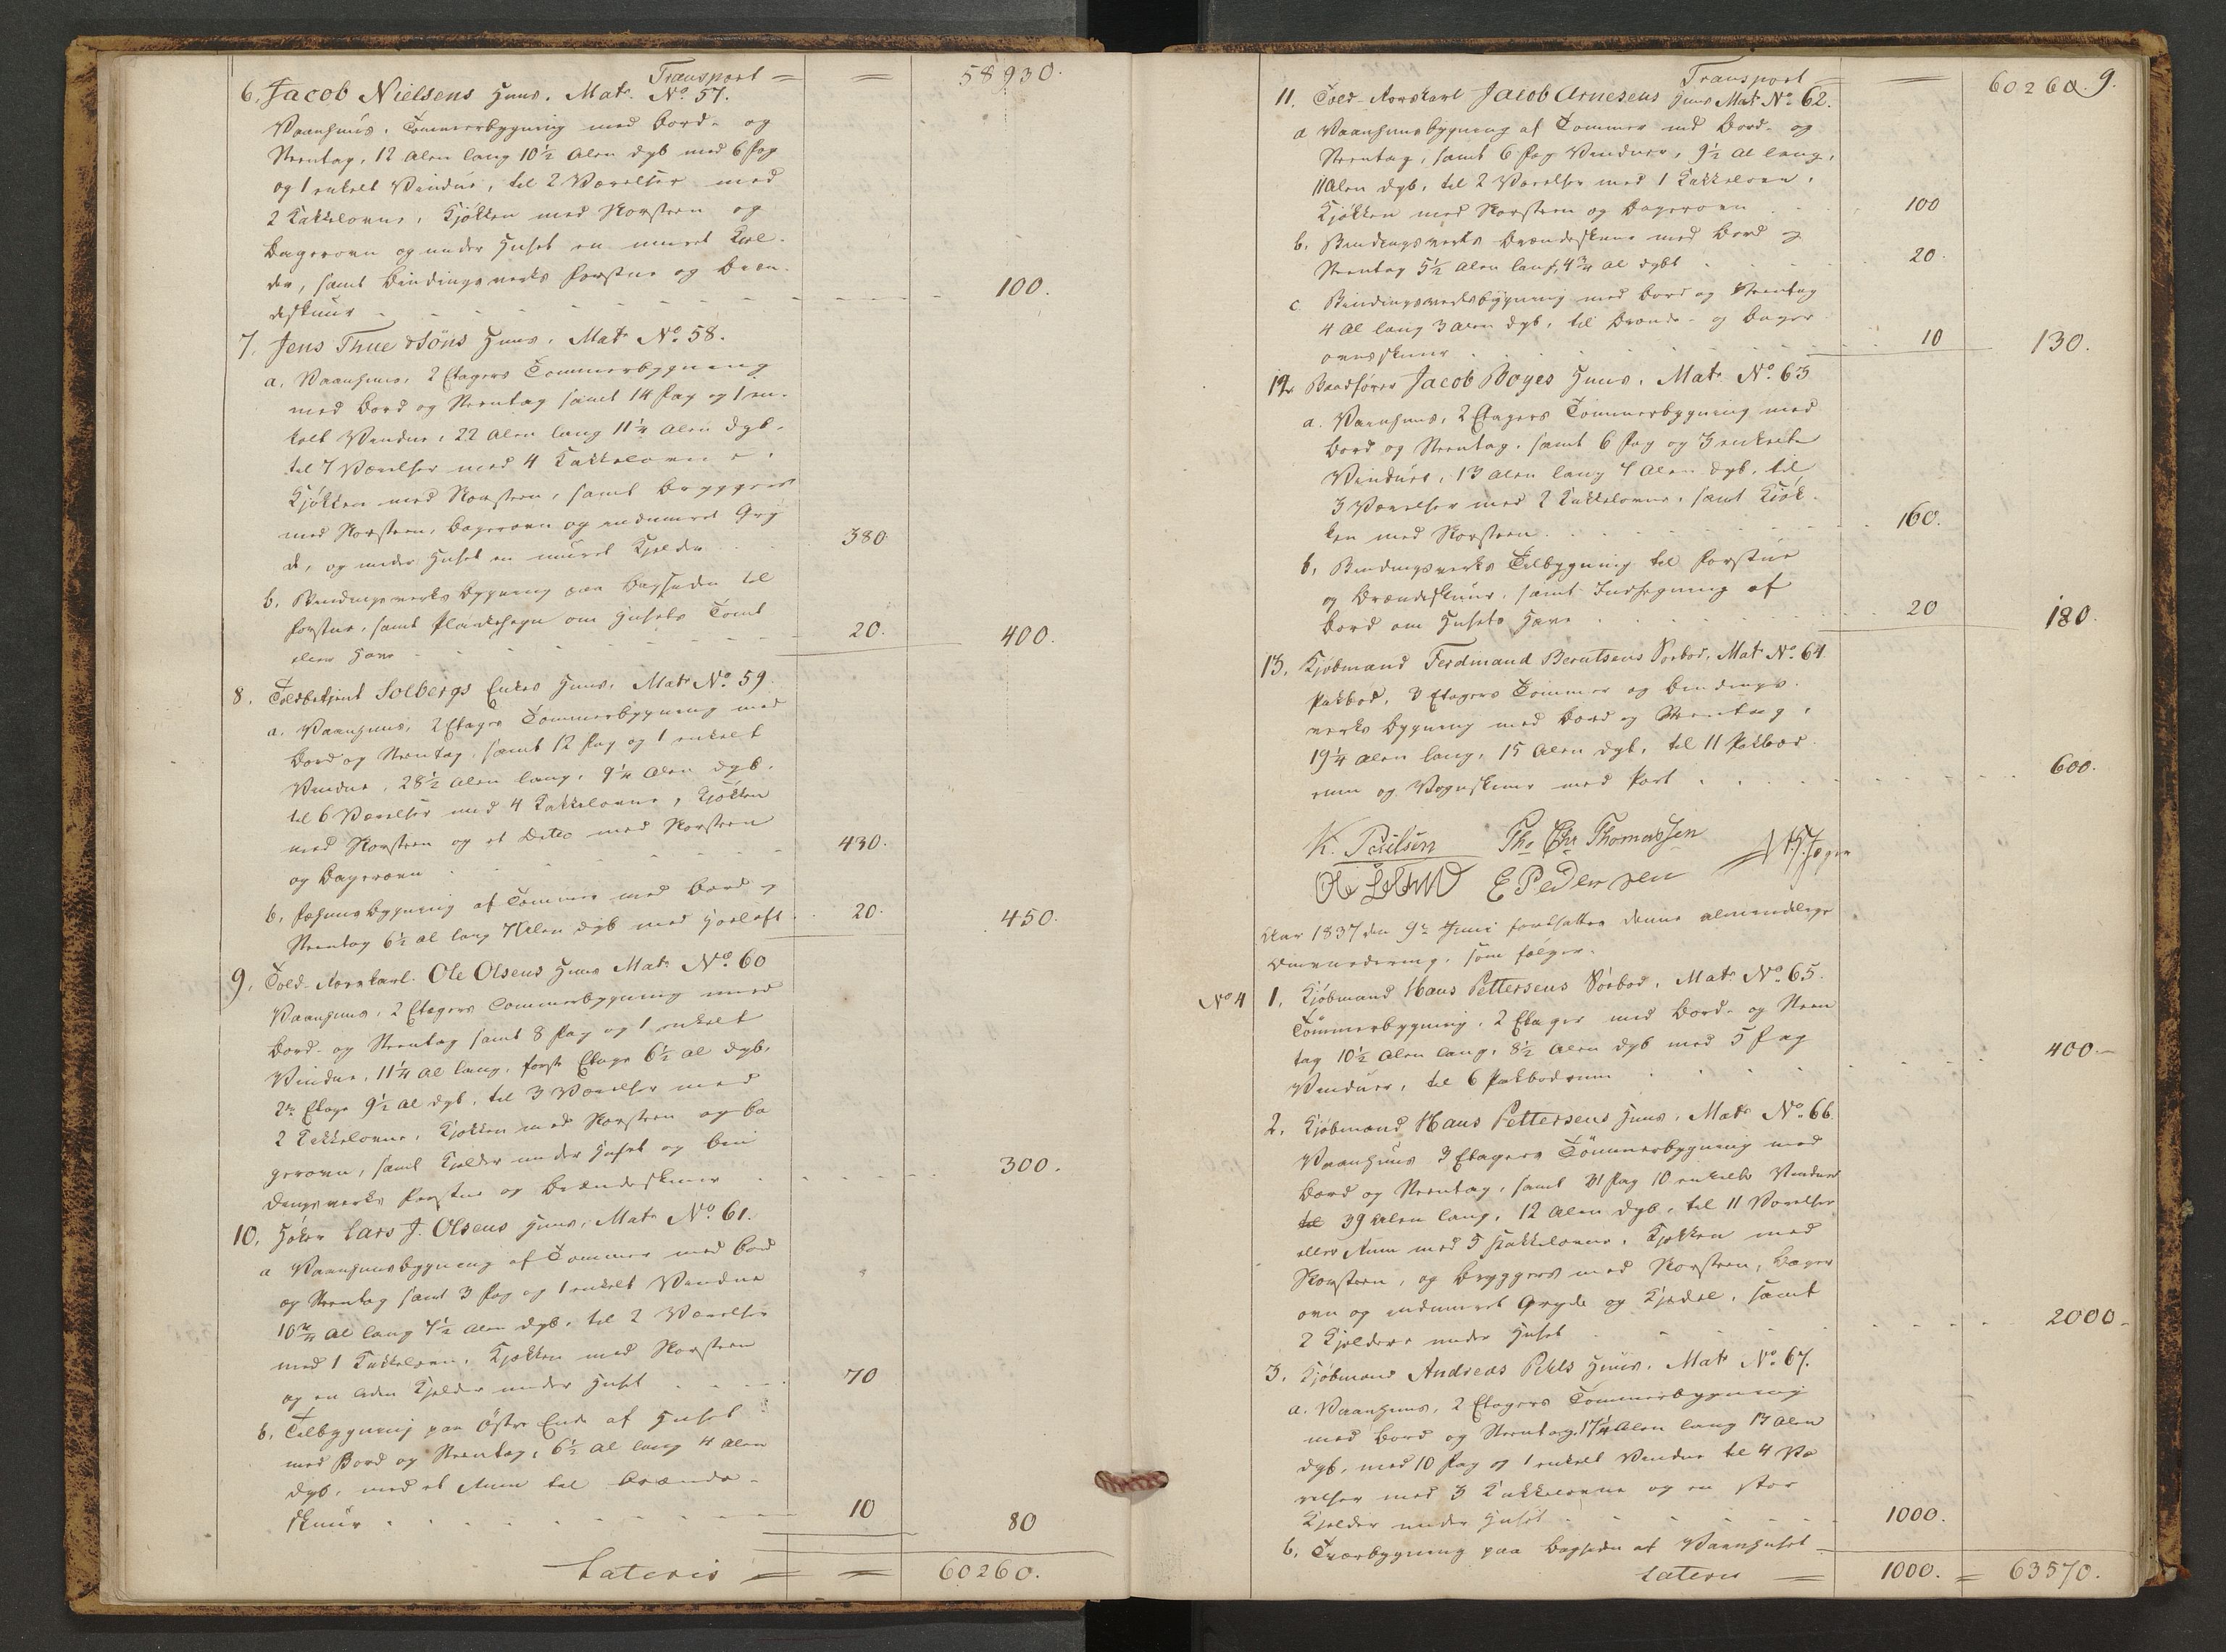 Transport = = 58930.
6. Jacob Nielsens Huus. Matr. No. 57.
Vaanhuus, Tømmerbygning med Bord- og
Steentag, 12 Alen lang 10½ Alen dyb med 6 Fag
og 1 enkelt Vindue, til 2 Værelser med
2 Kakkelovne, Kjøkken med Skorsteen og
Bagerovn og under Huset en muret Kjel-
der, samt Bindingsverks Forstue og Bræn-
deskuur - - - 100.
7. Jens Thuesøns Huus, Matr. No. 58.
a. Vaanhuus, 2 Etagers Tømmerbygning
med Bord og Steentag samt 14 Fag og 1 en-
kelt Vindue, 22 Alen lang 11¼ Alen dyb.
til 7 Værelser med 4 Kakkelovne,
Kjøkken med Skorsteen, samt Bryggers
med Skorsteen, Bagerovn og indmuret Gry
de, og under Huset en muret Kjelder . . 380.
b. Bindingsverks Bygning paa Bagsiden til
Forstue, samt Plankehegn om Husets Tomt
eller Have - - - 20. 400.
8. Toldbetjent Solbergs Enkes Huus, Matr. No. 59.
a. Vaanhuus, 2 Etagers Tømmerbygning med
Bord og Steentag, samt 12 Fag og 1 enkelt
Vindue, 28½ Alen lang, 9¼ Alen dyb.
til 6 Værelser med 4 Kakkelovne, Kjøkken
med Skorsteen og et Ditto med Skorsteen
og Bagerovn - - - 430.
b. Fæhuusbygning af Tømmer med Bord og
Steentag 6½ Al lang 7 Alen dyb med Høeloft . 20. 450.
9. Told-Rorskarl Ole Olsens Huus Matr. No. 60
Vaanhuus, 2 Etagers Tømmerbygning med
Bord- og Steentag samt 8 Fag og 1 enkelt
Vindue, 11¼ Al lang, første Etage 6½ Al dyb,
2den Etage 9½ Al dyb, til 3 Værelser med
2 Kakkelovne, Kjøkken med Skorsteen og Ba
gerovn, samt Kjelder under Huset og Bin
dingsverks Forstue og Brændeskuur . . . 300.
10. Høker Lars J. Olsens Huus, Matr. No. 61.
a Vaanhuusbygning af Tømmer med Bord
og Steentag samt 3 Fag og 1 enkelt Vindue
10¾ Al lang 7½ Alen dyb, til 2 Værelser
med 1 Kakkelovn, Kjøkken med Skorsteen
og en liden Kjelder under Huset . . . 70
b. Tilbygning paa Østre Ende af Huset
med Bord og Steentag, 6½ Al lang 4 Alen
dyb, med et Rum til Brænde-
skuur . . . 10 80
Lateris = = 60260.
9.
Transport = = 60260.
11. Told-Rorskarl Jacob Arnesens Huus Matr No. 62.
a Vaanhuusbygning af Tømmer med Bord- og
Steentag, samt 6 Fag Vinduer, 9½ Al lang,
11 Alen dyb, til 2 Værelser med 1 Kakkelovn,
Kjøkken med Skorsteen og Bagerovn . . . 100
b. Bindingsverks Brændeskuur med Bord og
Steentag 5½ Alen langt, 4¾ Al dybt . . . 20.
c Bindingsverksbygning med Bord og Steentag
4 Al lang 3 Alen dyb, til Brænde- og Bager
ovnsskuur . . . 10 130.
12. Baadfører Jacob Boyes Huus, Matr No. 63
a. Vaanhuus, 2 Etagers Tømmerbygning med
Bord og Steentag, samt 6 Fag og 3 enkelte
Vinduer, 13 Alen lang 7 Alen dyb, til
3 Værelser med 2 Kakkelovne, samt Kjøk-
ken med Skorsteen . . . 160.
b. Bindingsverks Tilbygning til Forstue
og Brændeskuur, samt Indhegning af
Bord om Husets Have . . . 20 180.
13. Kjøbmand Ferdinand Berntsens Søebod, Matr No. 64.
Pakbod, 3 Etagers Tømmer og Bindings-
verks Bygning med Bord og Steentag,
19¼ Alen lang, 15 Alen dyb, til 11 Pakbod
rum og Vognskuur med Port . . . 600.
K. Poulsen Tho Chr Thomassen
E Pedersen
Aar 1837 den 9de Juni fortsattes denne almindelige
Omvurdering, som følger.
No 4 1. Kjøbmand Hans Pettersens Søebod, Matr No. 65.
Tømmerbygning, 2 Etager med Bord- og Steen
tag 10½ Alen lang, 8½ Alen dyb med 5 Fag
Vinduer, til 6 Pakbodrum . . . 400.
2. Kjøbmand Hans Pettersens Huus, Matr No. 66
Vaanhuus 3 Etagers Tømmerbygning med
Bord og Steentag, samt 31 Fag 10 enkelte Vinduer
til 39 Alen lang, 12 Alen dyb, til 11 Værelser
eller Rum med 5 Kakkelovne, Kjøkken med
Skorsteen, og Bryggers med Skorsteen, Bager
ovn og indmuret Gryde og Kjedel, samt
2 Kjeldere under Huset . . . 2000.
3. Kjøbmand Andreas Pihls Huus, Matr No. 67.
a. Vaanhuus, 2 Etagers Tømmerbygning
med Bord og Steentag, 17¼ Alen lang 13 Alen
dyb, med 10 Fag og 1 enkelt Vindue til 4 Væ
relser med 3 Kakkelovne og en stor
Kjelder under Huset . . . 1000.
b. Tværbygning paa Bagsiden af Vaanhuset
Lateris = 1000. = 63570.